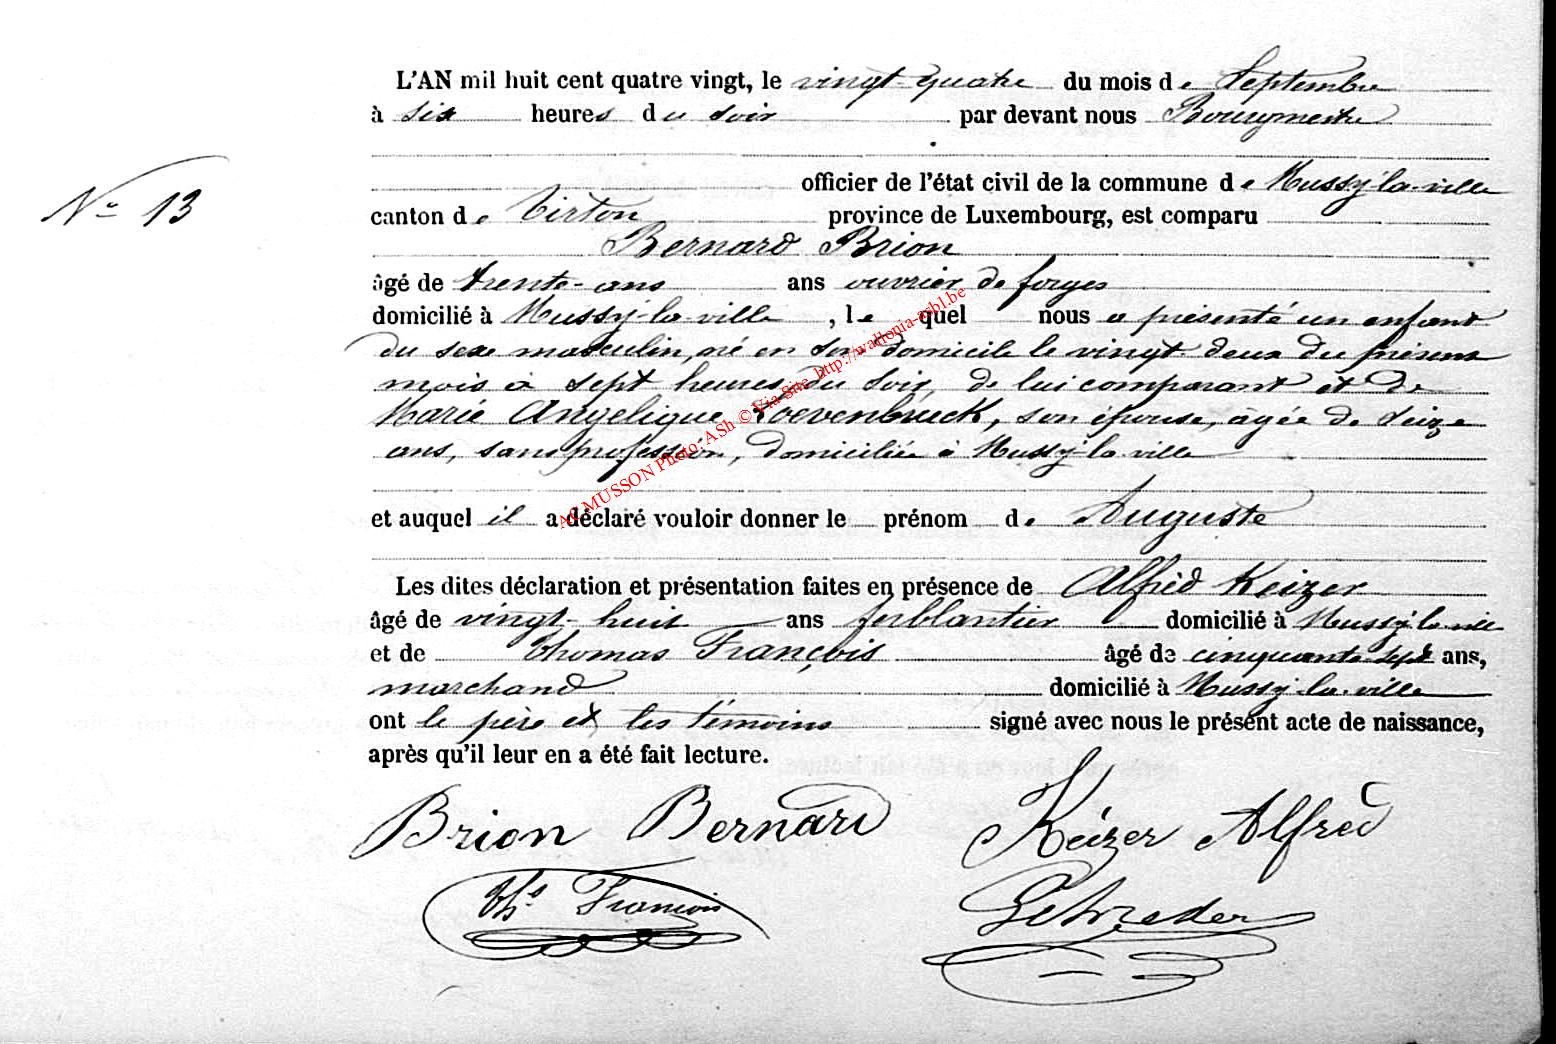 L'AN mil huit cent quatre vingt, le vingt-quatre du mois de Septembre
à six heures du soir par devant nous Bourgmestre
officier de l'état civil de la commune de Mussy-la-ville
N° 13
canton de Virton province de Luxembourg, est comparu
Bernard Brion
âgé de trente-ans ans ouvrier de forges
domicilié à Mussy-la-ville, lequel nous a présenté un enfant
du sexe masculin, né en son domicile le vingt-deux du présent
mois à sept heures du soir, de lui comparant et de
Marie Angelique Loevenbruck, son épouse, agée de seize
ans, sans profession, domiciliée à Mussy-la-ville
et auquel il a déclaré vouloir donner le prénom de Auguste
Les dites déclaration et présentation faites en présence de Alfred Keizer
âgé de vingt-huit ans ferblantier domicilié à Mussy-la-ville
et de Thomas François âgé de cinquante-sept ans,
marchand domicilié à Mussy-la-ville
ont le père et les témoins signé avec nous le présent acte de naissance,
après qu'il leur en a été fait lecture.
Brion Bernard Keizer Alfred
Ths François Schræder
AC MUSSON Photo: ASh © Via Site http://wallonia-asbl.be